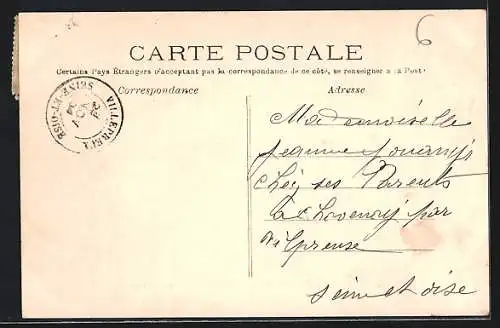 6
CARTE POSTALE
Certains Pays Étrangers n'acceptant pas la correspondance de ce côté, se renseigner à la Poste
Correspondance
Adresse
VILLEPREUX
SEINE-ET-OISE
Mademoiselle
Jeanne
Chez ses Parents
par
Seine et oise